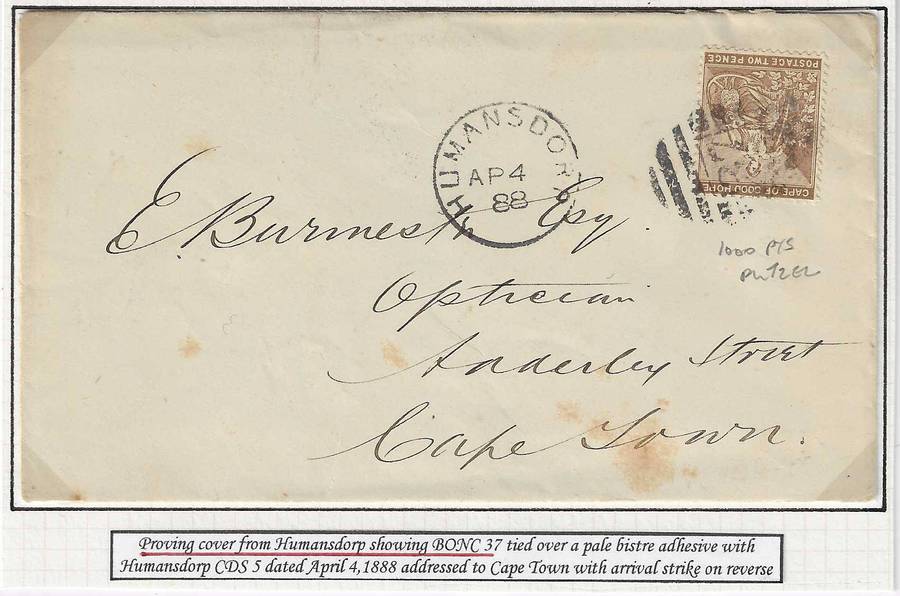 POSTAGE TWO PENCE
CAPE OF GOOD HOPE
HUMANSDORP
AP 4
88
E. Burmester Esq.
Optician
Adderley Street
Cape Town.
1000 P/S
Proving cover from Humansdorp showing BONC 37 tied over a pale bistre adhesive with
Humansdorp CDS 5 dated April 4, 1888 addressed to Cape Town with arrival strike on reverse